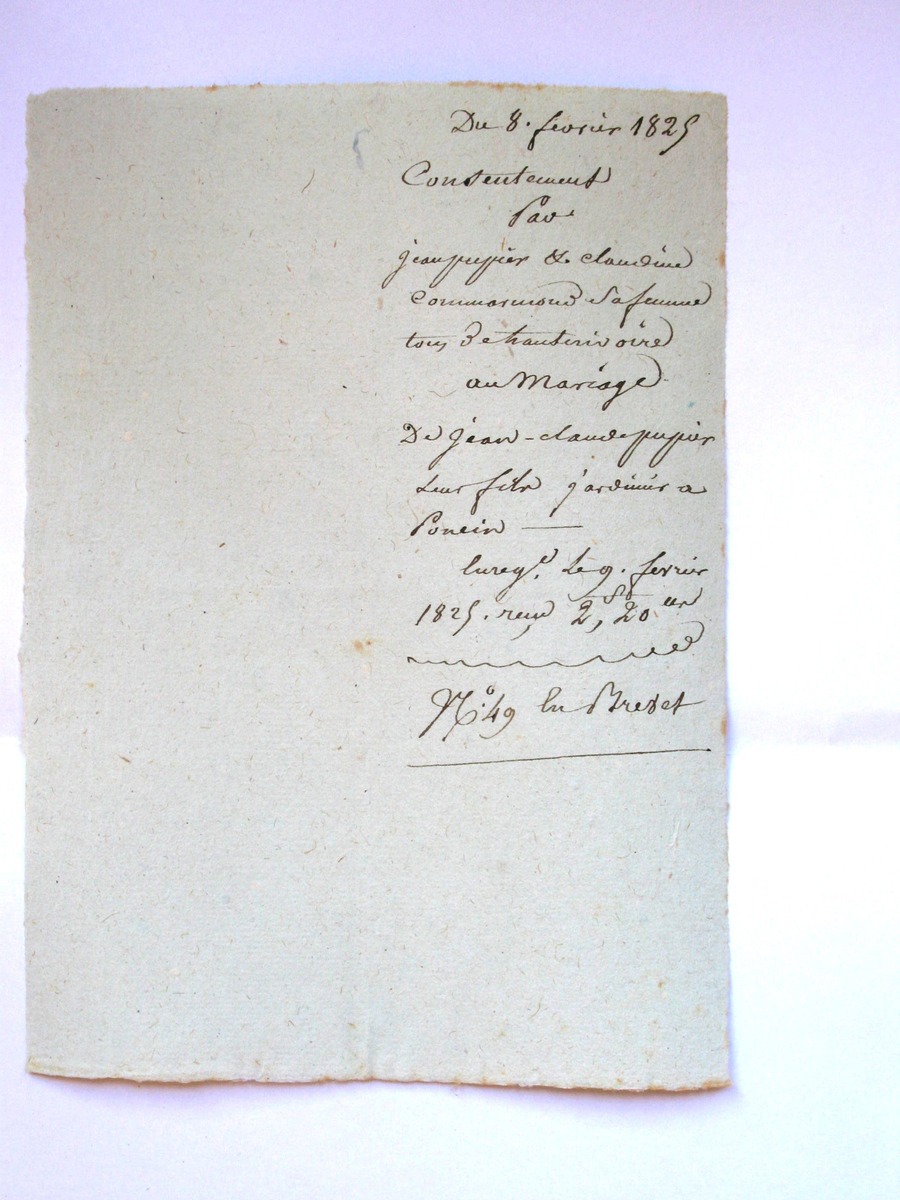 Du 8. fevrier 1825
Consentement
Par
jean pupier & claudine
Commarmond sa femme
tous de hauterivoire
au Mariage
De jean-claude pupier
leur fils jardinier a
Poncin —
Enregt. le 9. fevrier
1825. reçu 2f, 20
No. 49 En Brevet